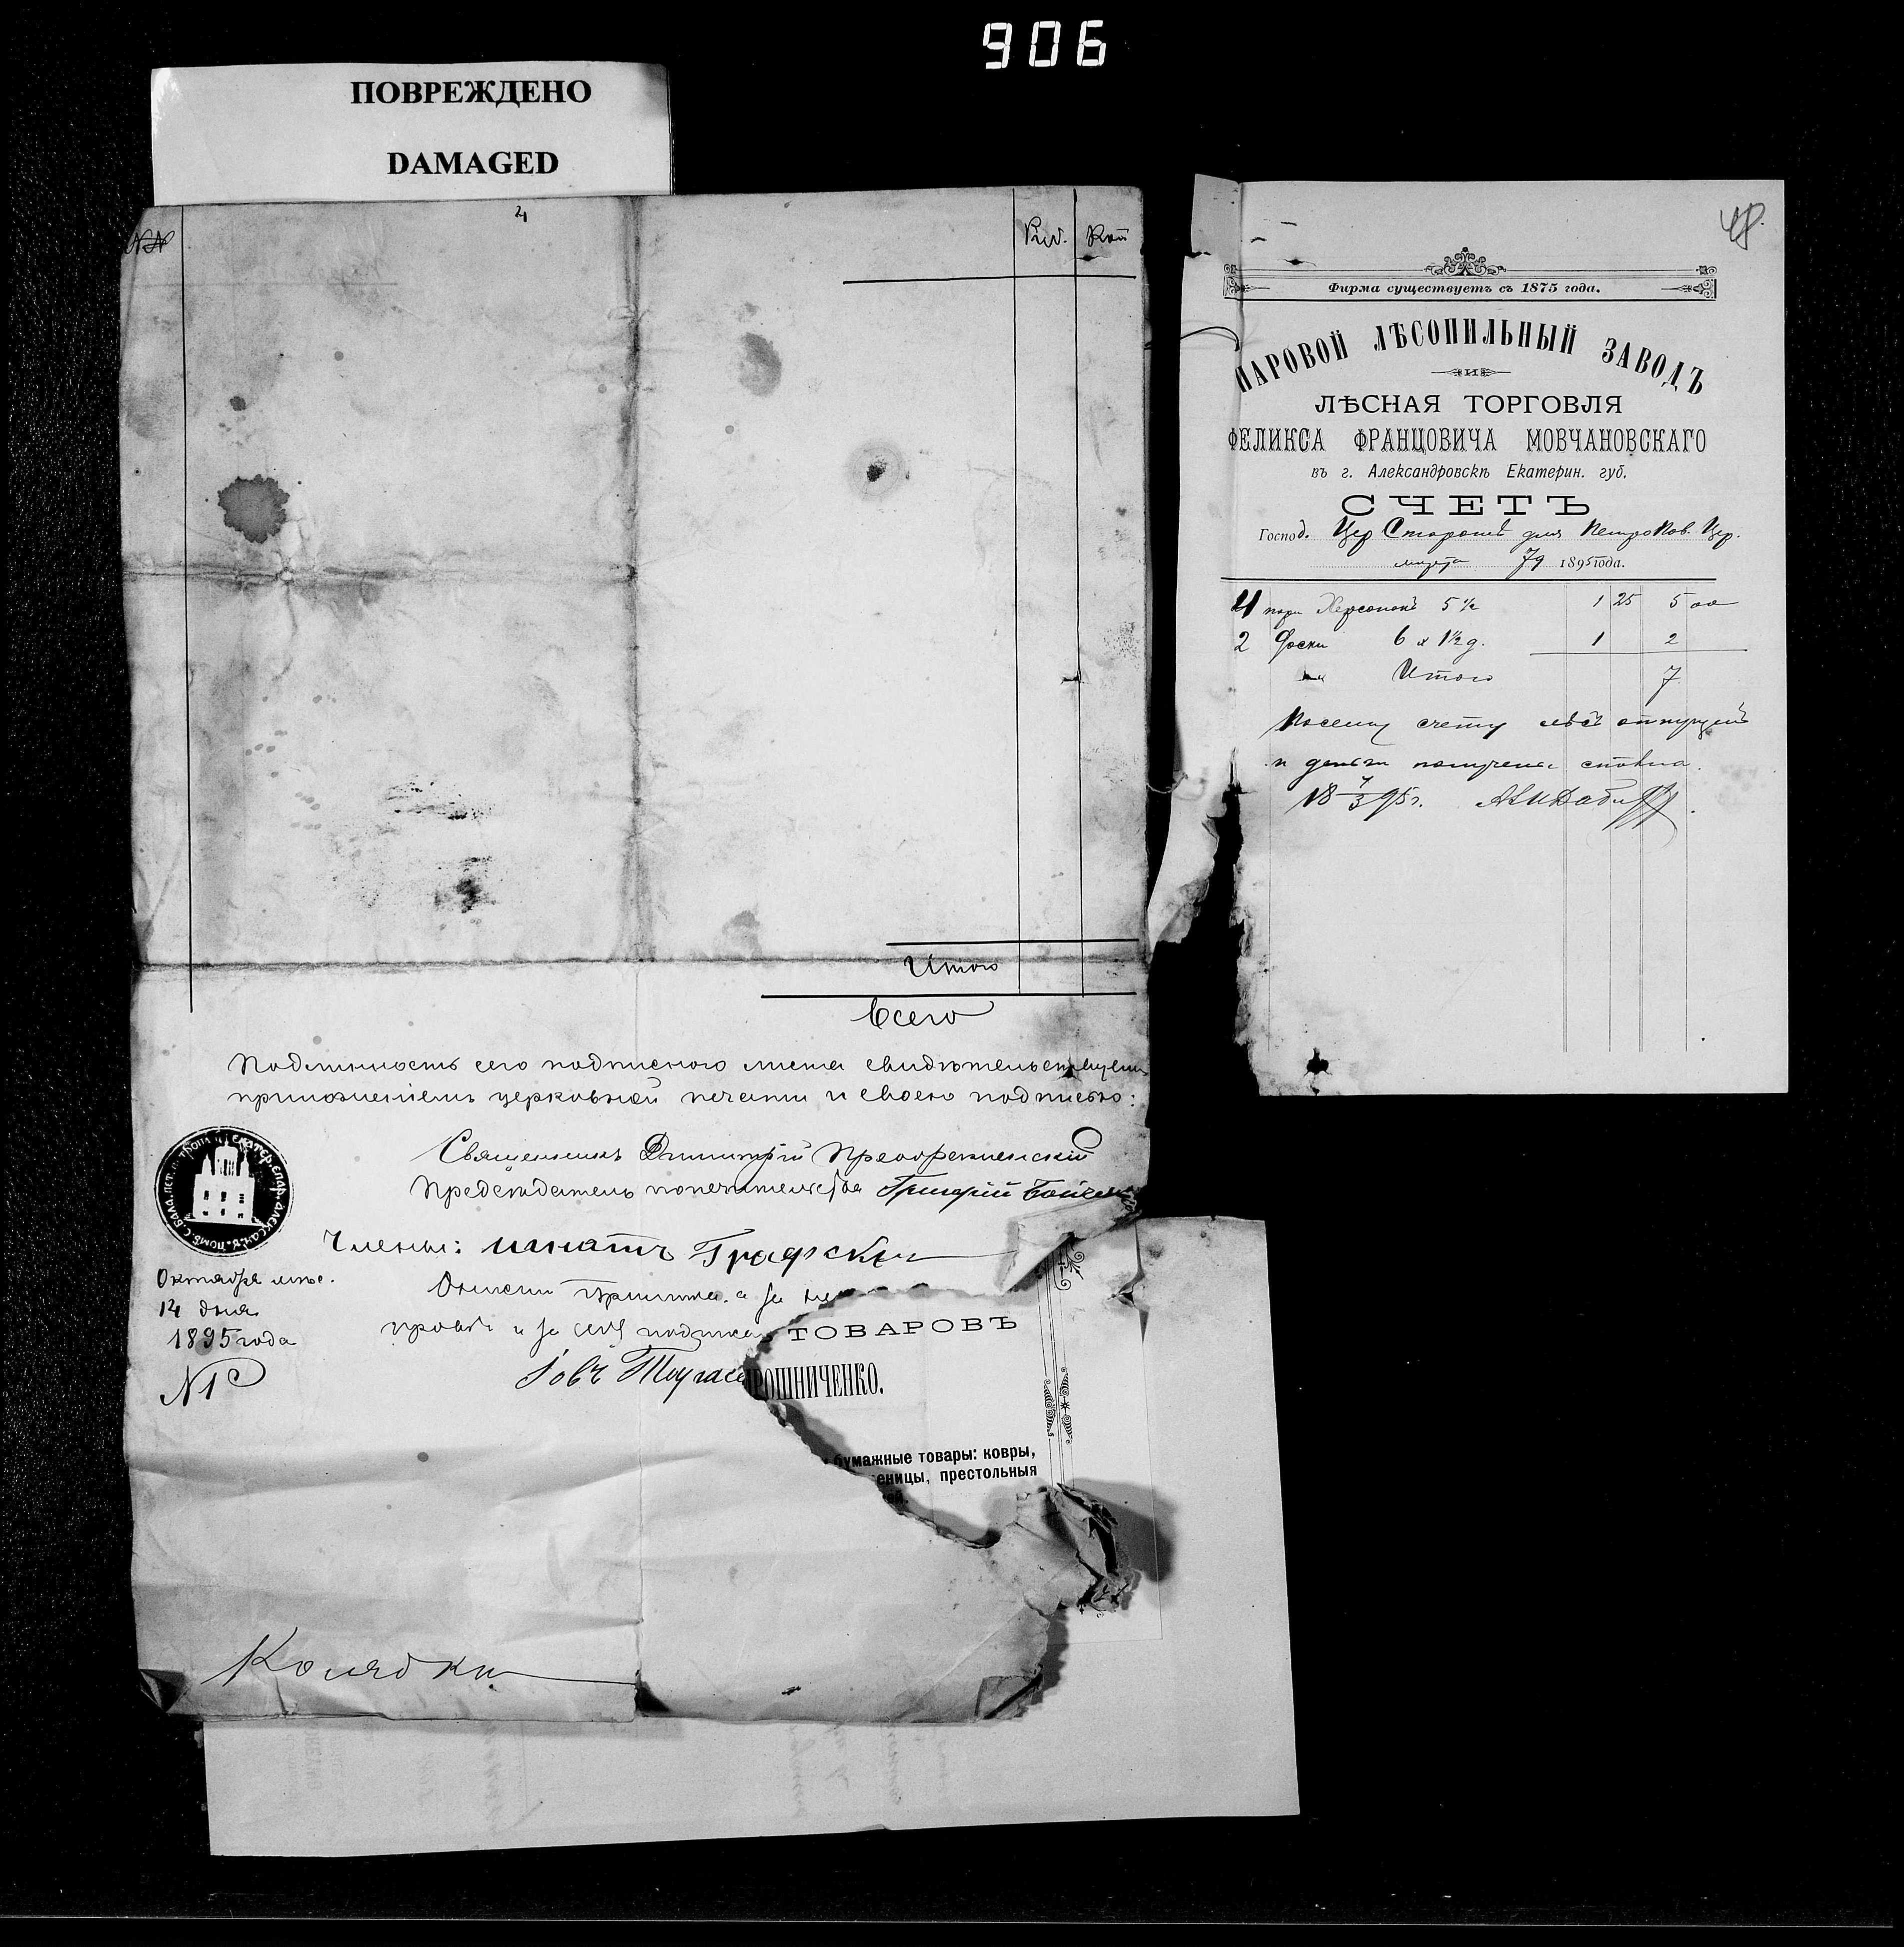 906
ПОВРЕЖДЕНО
DAMAGED
4
NN Руб. Коп
Итого
Всего
Подлинность сего подписного листа свидѣтельствуемъ
приложеніемъ церковной печати и своею подписью:
Священникъ Димитрій Преображенскій
Предсѣдатель попечительства Григорій
Члены: Игнатъ Графскій
Октября мѣс.
14 дня
1895 года
N1
и за себя
Іовъ
ТОВАРОВЪ
РОШНИЧЕНКО.
бумажные товары: ковры,
еницы, престольныя
Колядки
48.
Фирма существуетъ съ 1875 года.
ПАРОВОЙ ЛѢСОПИЛЬНЫЙ ЗАВОДЪ
И
ЛѢСНАЯ ТОРГОВЛЯ
ФЕЛИКСА ФРАНЦОВИЧА МОВЧАНОВСКАГО
въ г. Александровскѣ Екатерин. губ.
СЧЕТЪ
Господ. Цер для Петро Пав. Цер.
марта 7 1895 года.
4 5 ½ 1 25 5 00
2 доски 6 х 1½ д. 1 2
Итого 7
По сему счету лѣсъ отпущенъ
и деньги получены сполна.
18 7/3 95 г.